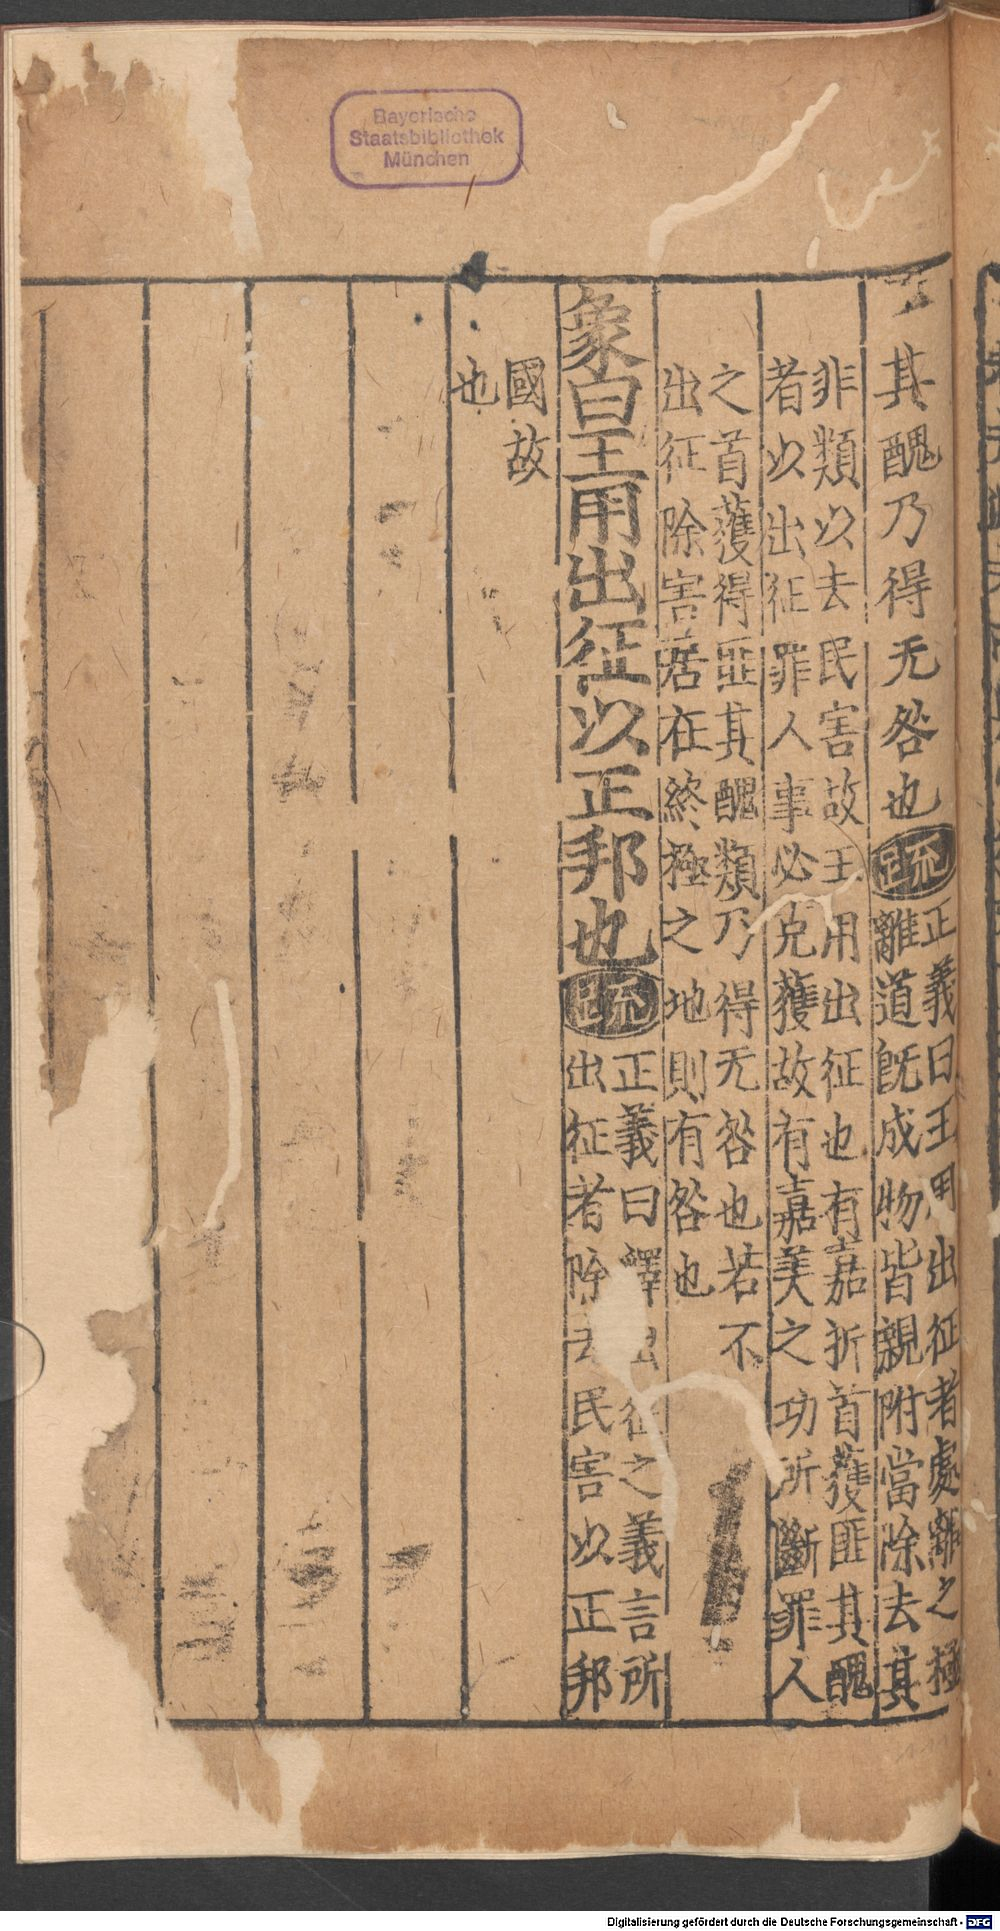 其醜乃得无咎也疏正義曰王用出征者處離之極
離道旣成物皆親附當除去其
非類以去民害故王用出征也有嘉折首獲匪其醜
者以出征罪人事必克獲故有嘉美之功所斷罪人
之首獲得匪其醜類乃得无咎也若不
出征除害居在終極之地則有咎也
象曰王用出征以正邦也疏正義曰釋出征之義言所
出征者除去民害以正邦
國故
也
Bayerische
Staatsbibliothek
München
Digitalisierung gefördert durch die Deutsche Forschungsgemeinschaft - DFG